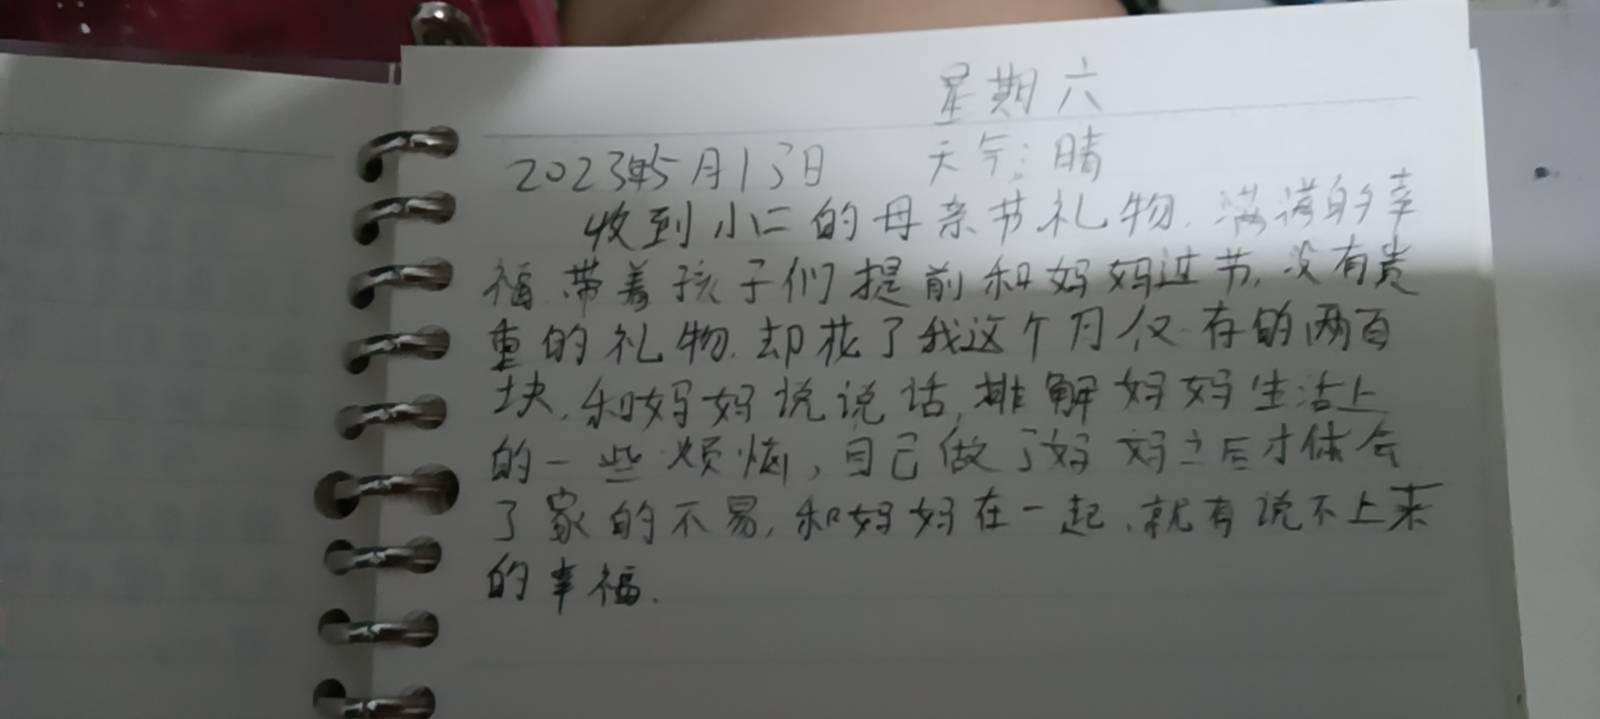 星期六
2023年5月13日 天气:晴
收到小仁的母亲节礼物.满满的幸
福.带着孩子们提前和妈妈过节,没有贵
重的礼物.却花了我这个月仅存的两百
块.和妈妈说说话,排解妈妈生活上
的一些烦恼,自己做了妈妈之后才体会
了家的不易,和妈妈在一起.就有说不上来
的幸福.